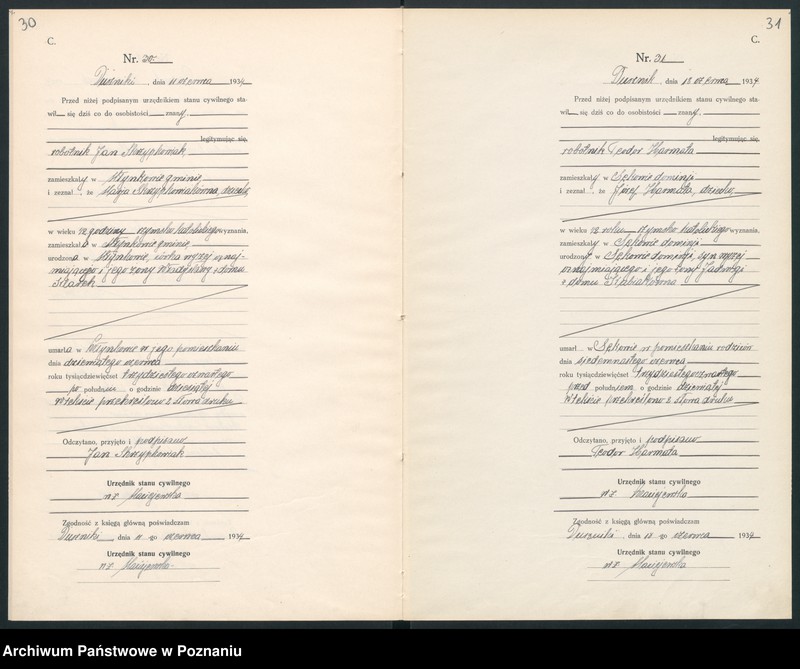 30
C.
Nr. 30
Duszniki, dnia 11 czerwca 1934
Przed niżej podpisanym urzędnikiem stanu cywilnego sta-
wił się dziś co do osobistości znany,
legitymując się,
robotnik Jan Skrzypkowiak,
zamieszkały w Młynkowie gminie,
i zeznał, że Marja Skrzypkowiakówna, dziecko,
w wieku godziny rzymsko katolickiego wyznania,
zamieszkała w Młynkowie gminie,
urodzona w Młynkowie, córka wyżej oznaj-
miającego i jego żony Władysławy z domu
umarła w Młynkowie w jego pomieszkaniu
dnia dziesiątego czerwca
roku tysiąc dziewięćset trzydziestego czwartego
po południu o godzinie dziesiątej
W tekście przekreślono 2 słowa druku
Odczytano, przyjęto i podpisano
Jan Skrzypkowiak
Urzędnik stanu cywilnego
w z. Maciejewska
Zgodność z księgą główną poświadczam
Duszniki, dnia 11-go czerwca 1934
Urzędnik stanu cywilnego
w z. Maciejewska
31
C.
Nr. 31
Duszniki, dnia 18 czerwca 1934
Przed niżej podpisanym urzędnikiem stanu cywilnego sta-
wił się dziś co do osobistości znany,
legitymując się,
robotnik Teodor Harmata
zamieszkały w Sękowie dominji
i zeznał, że Józef Harmata, dziecko,
w wieku roku rzymsko katolickiego wyznania,
zamieszkały w Sękowie dominji
urodzony w Sękowie dominji, syn wyżej
oznajmiającego i jego żony Jadwigi
z domu
umarł w Sękowie w pomieszkaniu rodziców
dnia siedemnastego czerwca
roku tysiąc dziewięćset trzydziestego czwartego
przed południem o godzinie dziesiątej
W tekście przekreślono 2 słowa druku
Odczytano, przyjęto i podpisano
Teodor Harmata
Urzędnik stanu cywilnego
w z. Maciejewska
Zgodność z księgą główną poświadczam
Duszniki, dnia 18-go czerwca 1934
Urzędnik stanu cywilnego
w z. Maciejewska
Archiwum Państwowe w Poznaniu